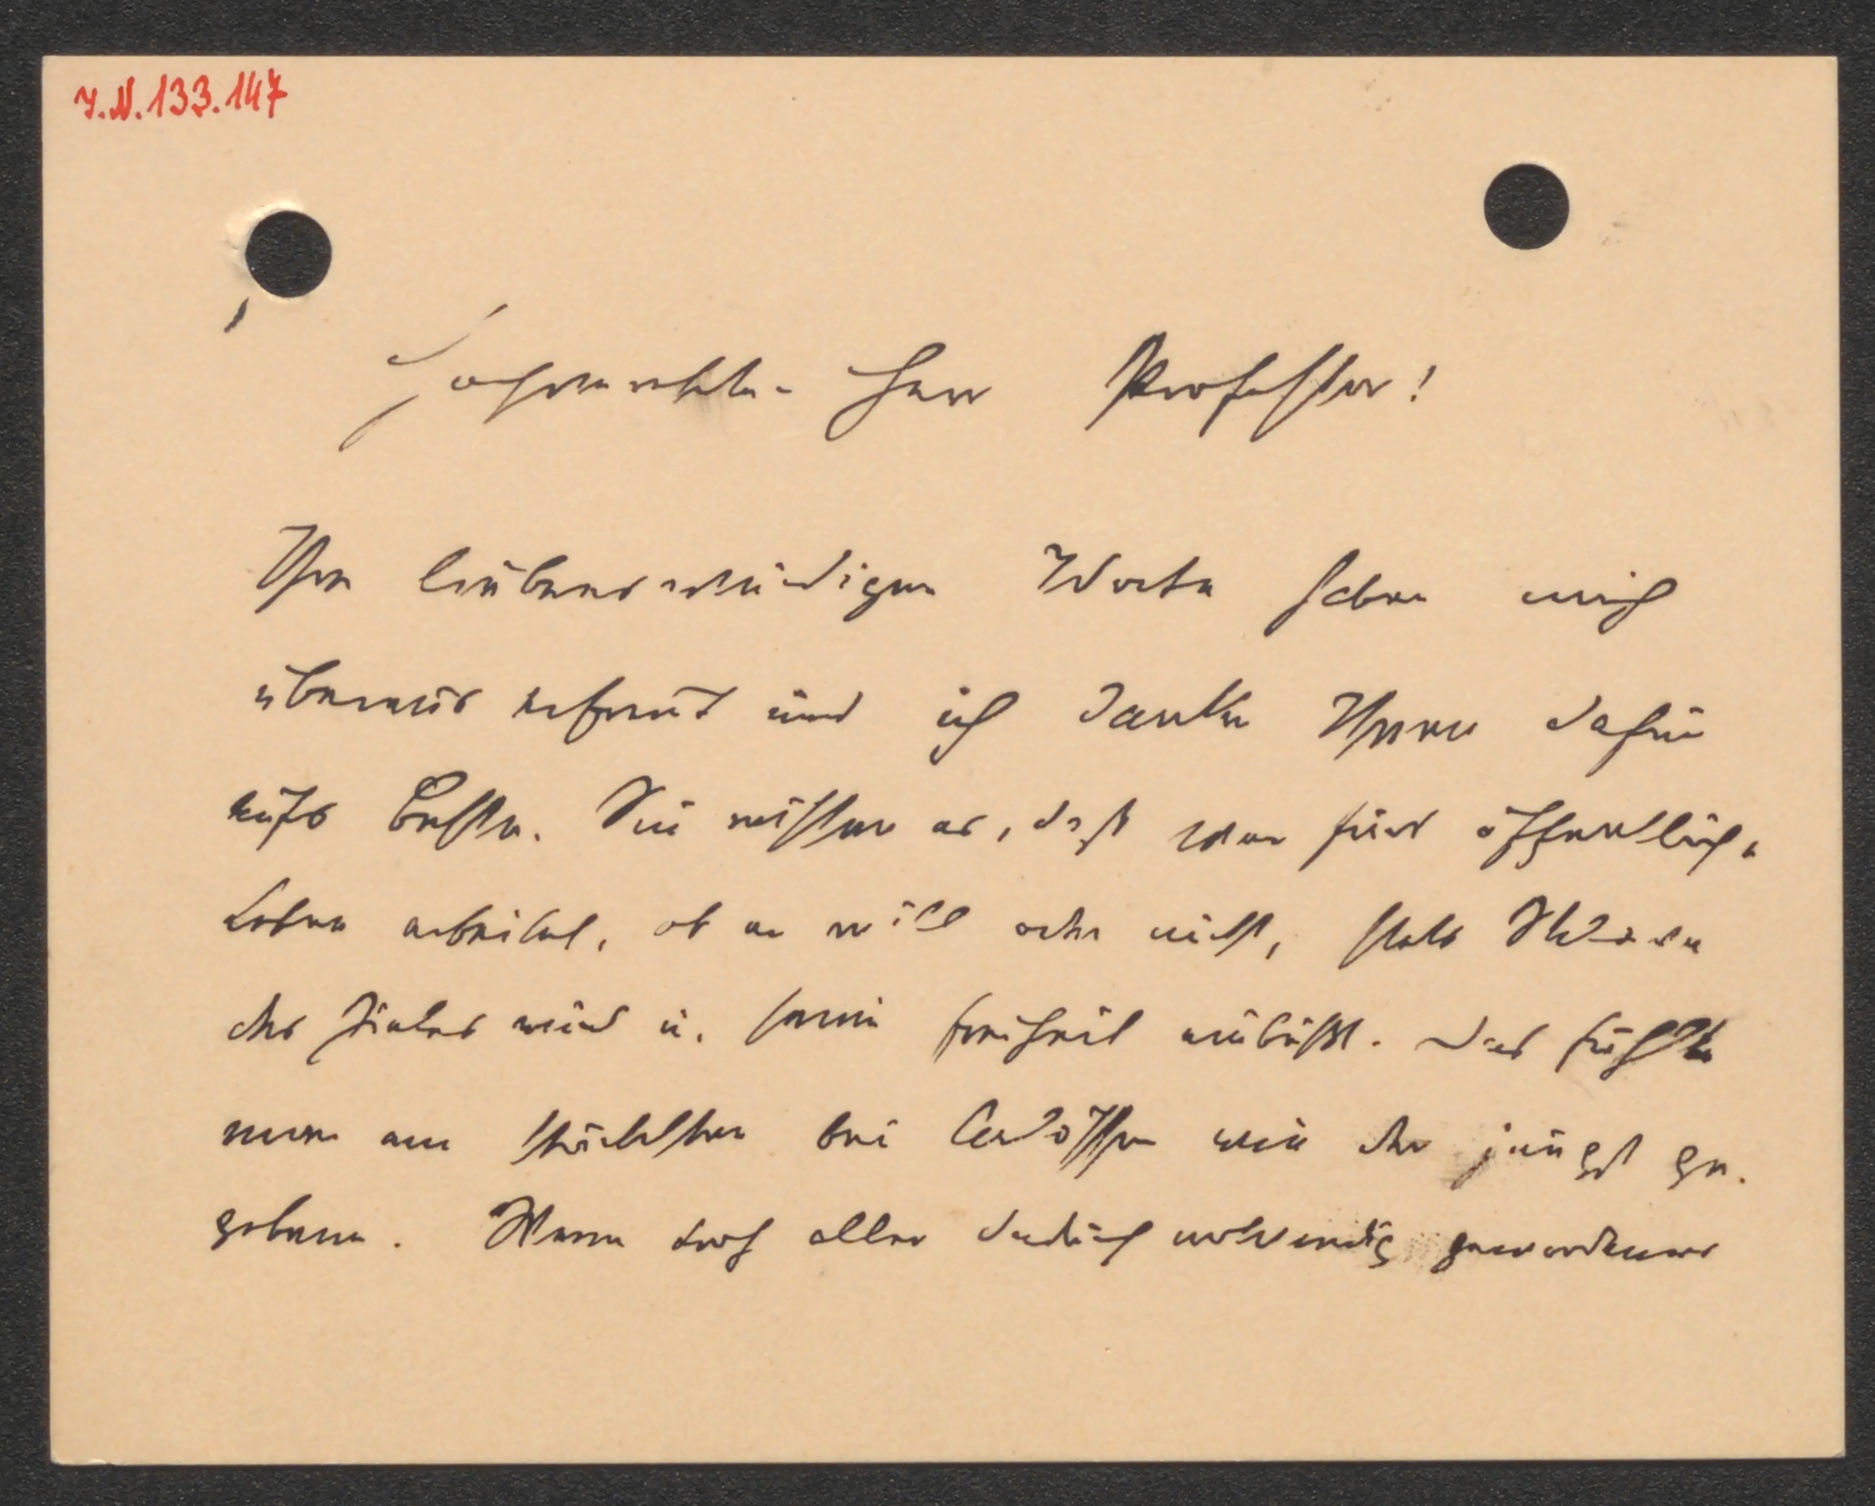 I.N. 133.147
Hochverehrter Herr Professor!
Ihre liebenswürdigen Worte haben mich
überaus erfreut und ich danke Ihnen dafür
aufs Beste. Sie wissen es, daß wer fürs öffentliche
Leben arbeitet, ob er will oder nicht, stets Sklave
des Zieles wird u. seine Freiheit einbüßt. Das fühlte
man am stärksten bei wie der jüngst ge-
gebenen. Wenn trotz aller dadurch notwendig gewordener